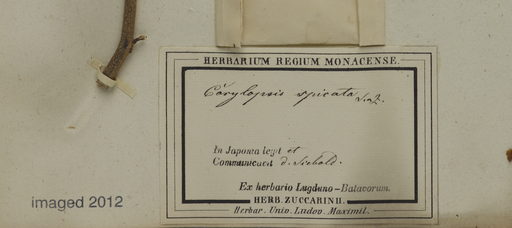 HERBARIUM REGIUM MONACENSE.
Corylopsis spicata S. & Z.
In Japonia legit et
Communicavit d. Siebold.
Ex herbario Lugduno-Batavorum.
HERB. ZUCCARINII.
Herbar. Univ. Ludov. Maximil.
imaged 2012